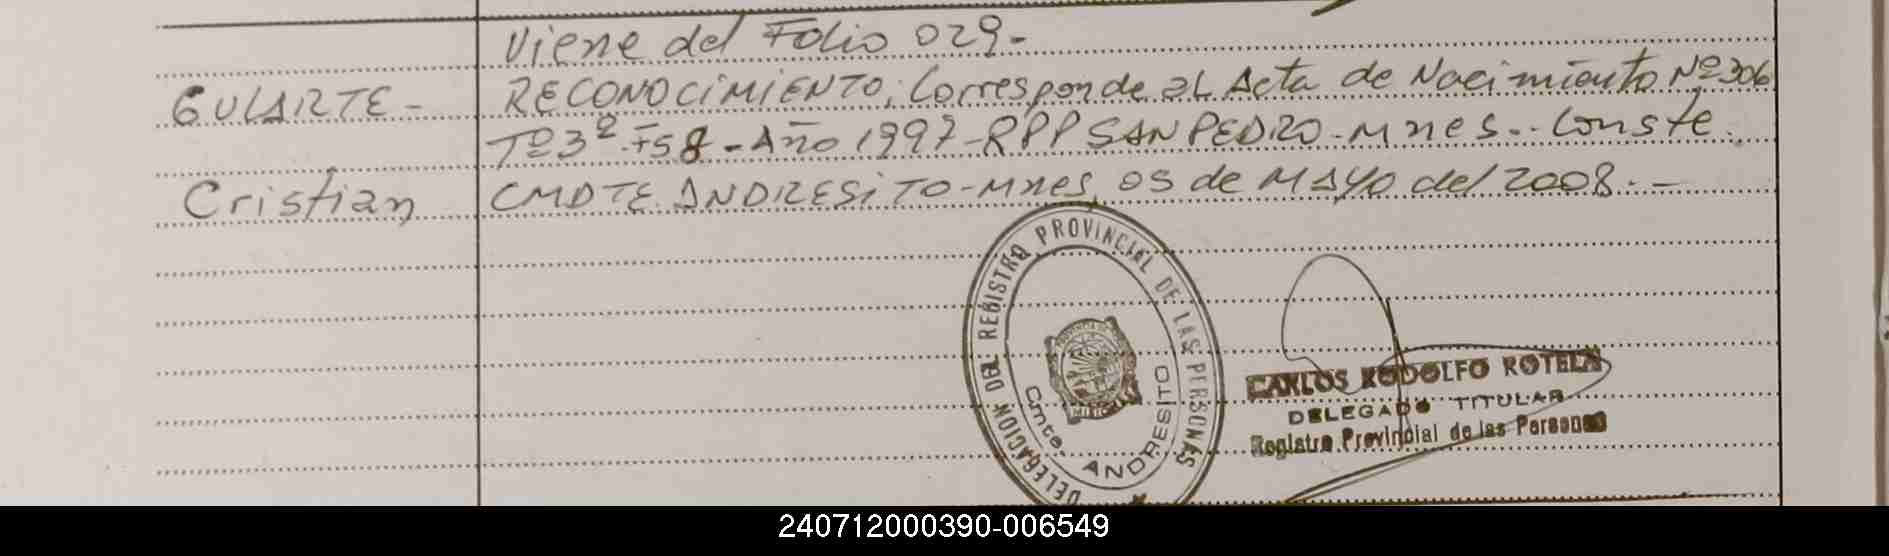 Viene del Folio 029.-
GULARTE - RECONOCIMIENTO; Corresponde al Acta de Nacimiento Nº306
Tº3º-Fs8-Año 1997-RPP SAN PEDRO-Mnes.. Conste.
Cristian CMDTE ANDRESITO-Mnes, 05 de MAYO del 2008.-
DELEGACION DEL REGISTRO PROVINCIAL DE LAS PERSONAS
Cmte. ANDRESITO
CARLOS RODOLFO ROTELA
DELEGADO TITULAR
Registro Provincial de las Personas
240712000390-006549